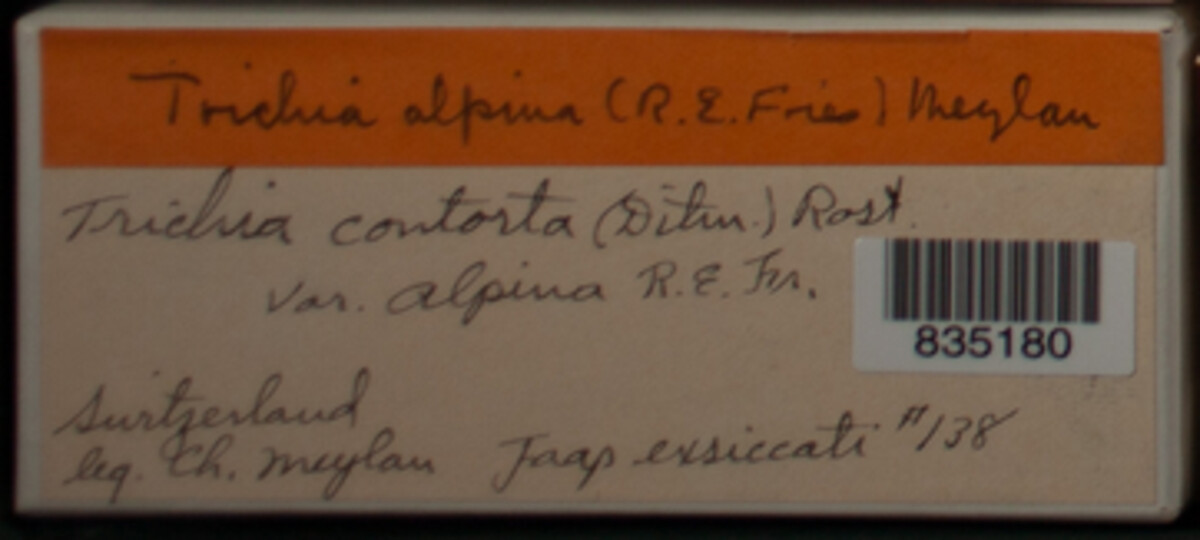 Trichia alpina (R.E.Fries) Meylan
Trichia contorta (Ditm.) Rost.
var. alpina R.E. Fr.
835180
Switzerland
leg. Ch. Meylan Jaap exsiccati #138